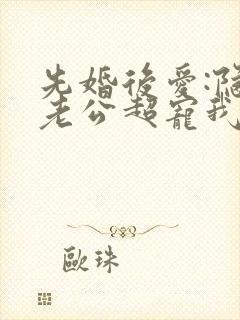 先婚後愛:
老公超寵我
歐珠